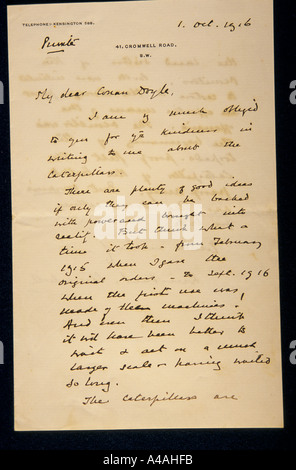 TELEPHONE: KENSINGTON
1. Oct. 1916
Private
41, CROMWELL ROAD,
S.W.
My dear Conan Doyle,
I am so much obliged
to you for yr kindness in
writing to me about the
Caterpillars.
There are plenty of good ideas
if only they can be backed
with power and brought into
reality. But think what a
time it took - from February
1915 when I gave the
original orders - to Sept. 1916
when the first use was
made of these machines!
And even then I think
it wd have been better to
wait & act on a much
larger scale - having waited
so long.
The caterpillars are
alamy
a
alamy
Image ID: A4AHFB
www.alamy.com